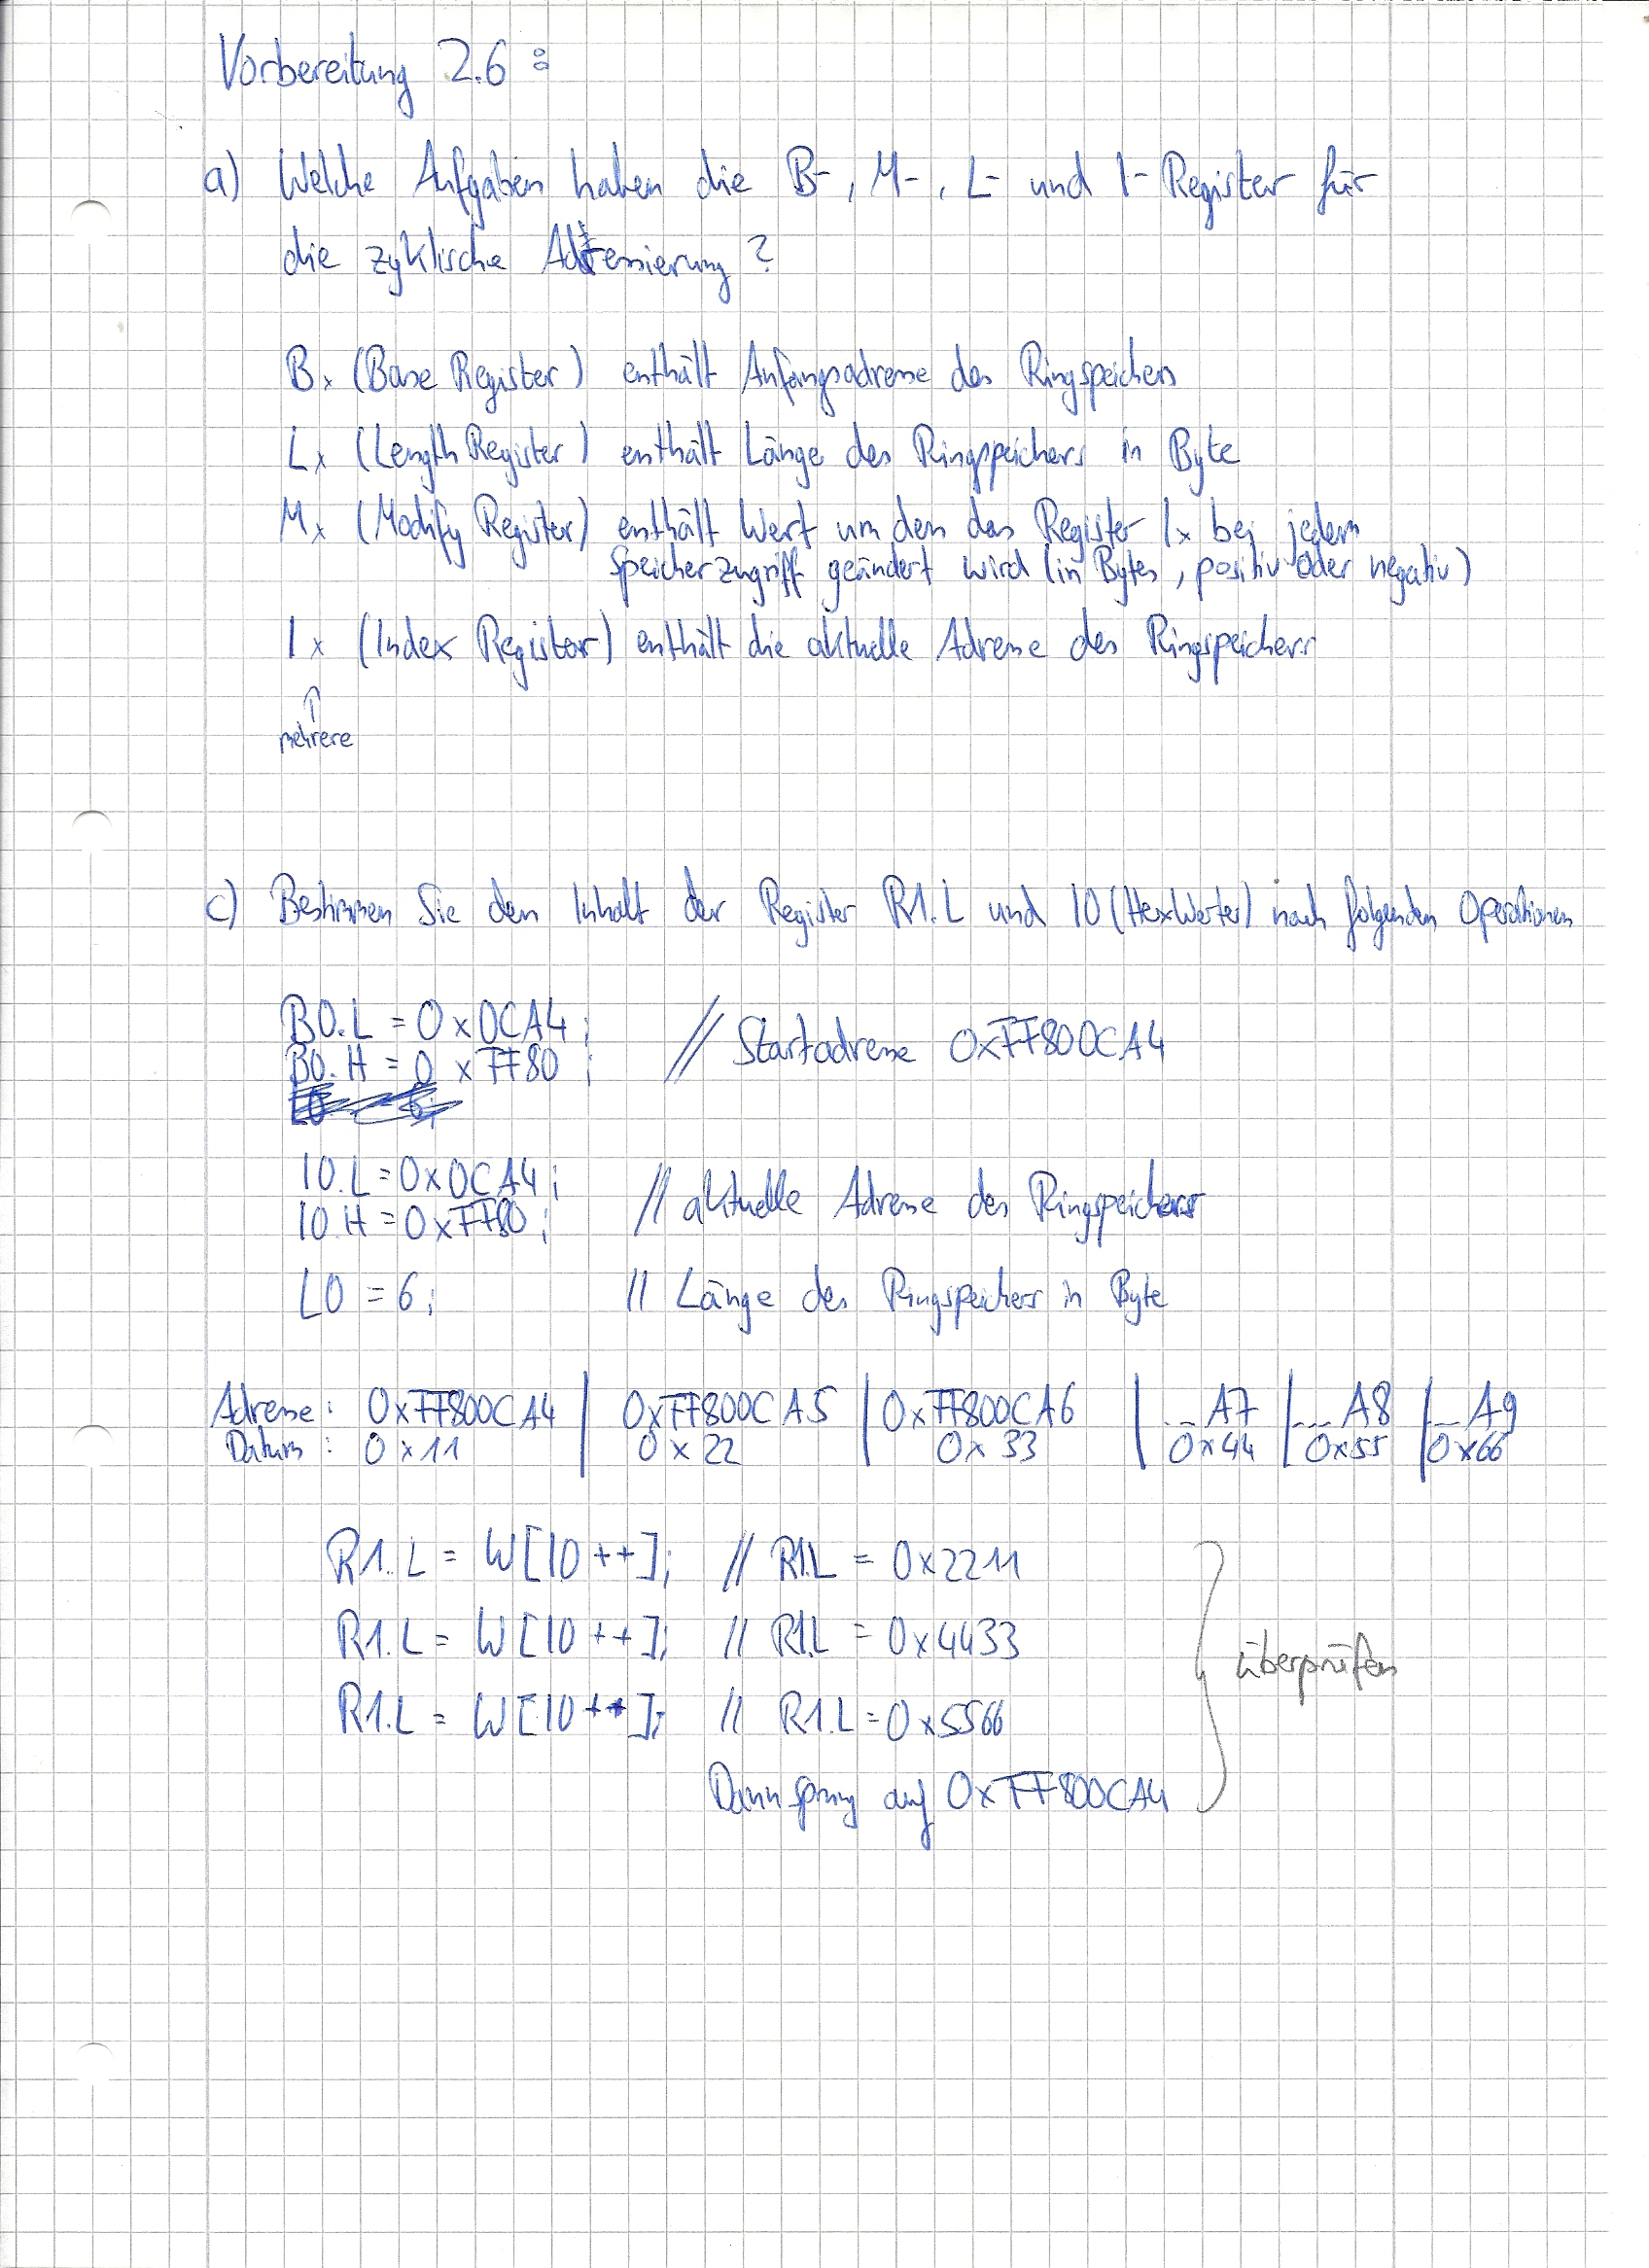 Vorbereitung 2.6:
a) Welche Aufgaben haben die B-, M-, L- und I-Register für
die zyklische Adressierung?
Bx (Base Register) enthält Anfangsadresse des Ringspeichers
Lx (Length Register) enthält Länge des Ringspeichers in Byte
Mx (Modify Register) enthält Wert um den das Register Ix bei jedem
Speicherzugriff geändert wird (in Bytes, positiv oder negativ)
Ix (Index Register) enthält die aktuelle Adresse des Ringspeichers
⇑
mehrere
c) Bestimmen Sie den Inhalt der Register R1.L und I0 (HexWerte) nach folgenden Operationen
B0.L = 0x0CA4;
B0.H = 0xFF80; // Startadresse 0xFF800CA4
I0.L = 0x0CA4;
I0.H = 0xFF80; // aktuelle Adresse des Ringspeichers
L0 = 6; // Länge des Ringspeichers in Byte
Adresse: 0xFF800CA4 | 0xFF800CA5 | 0xFF800CA6 | ... A7 | ... A8 | ... A9
Datum: 0x11 0x22 0x33 0x44 0x55 0x66
R1.L = W[I0++]; // R1.L = 0x2211
R1.L = W[I0++]; // R1.L = 0x4433
überprüfen
R1.L = W[I0++]; // R1.L = 0x5566
Dann Sprung auf 0xFF800CA4